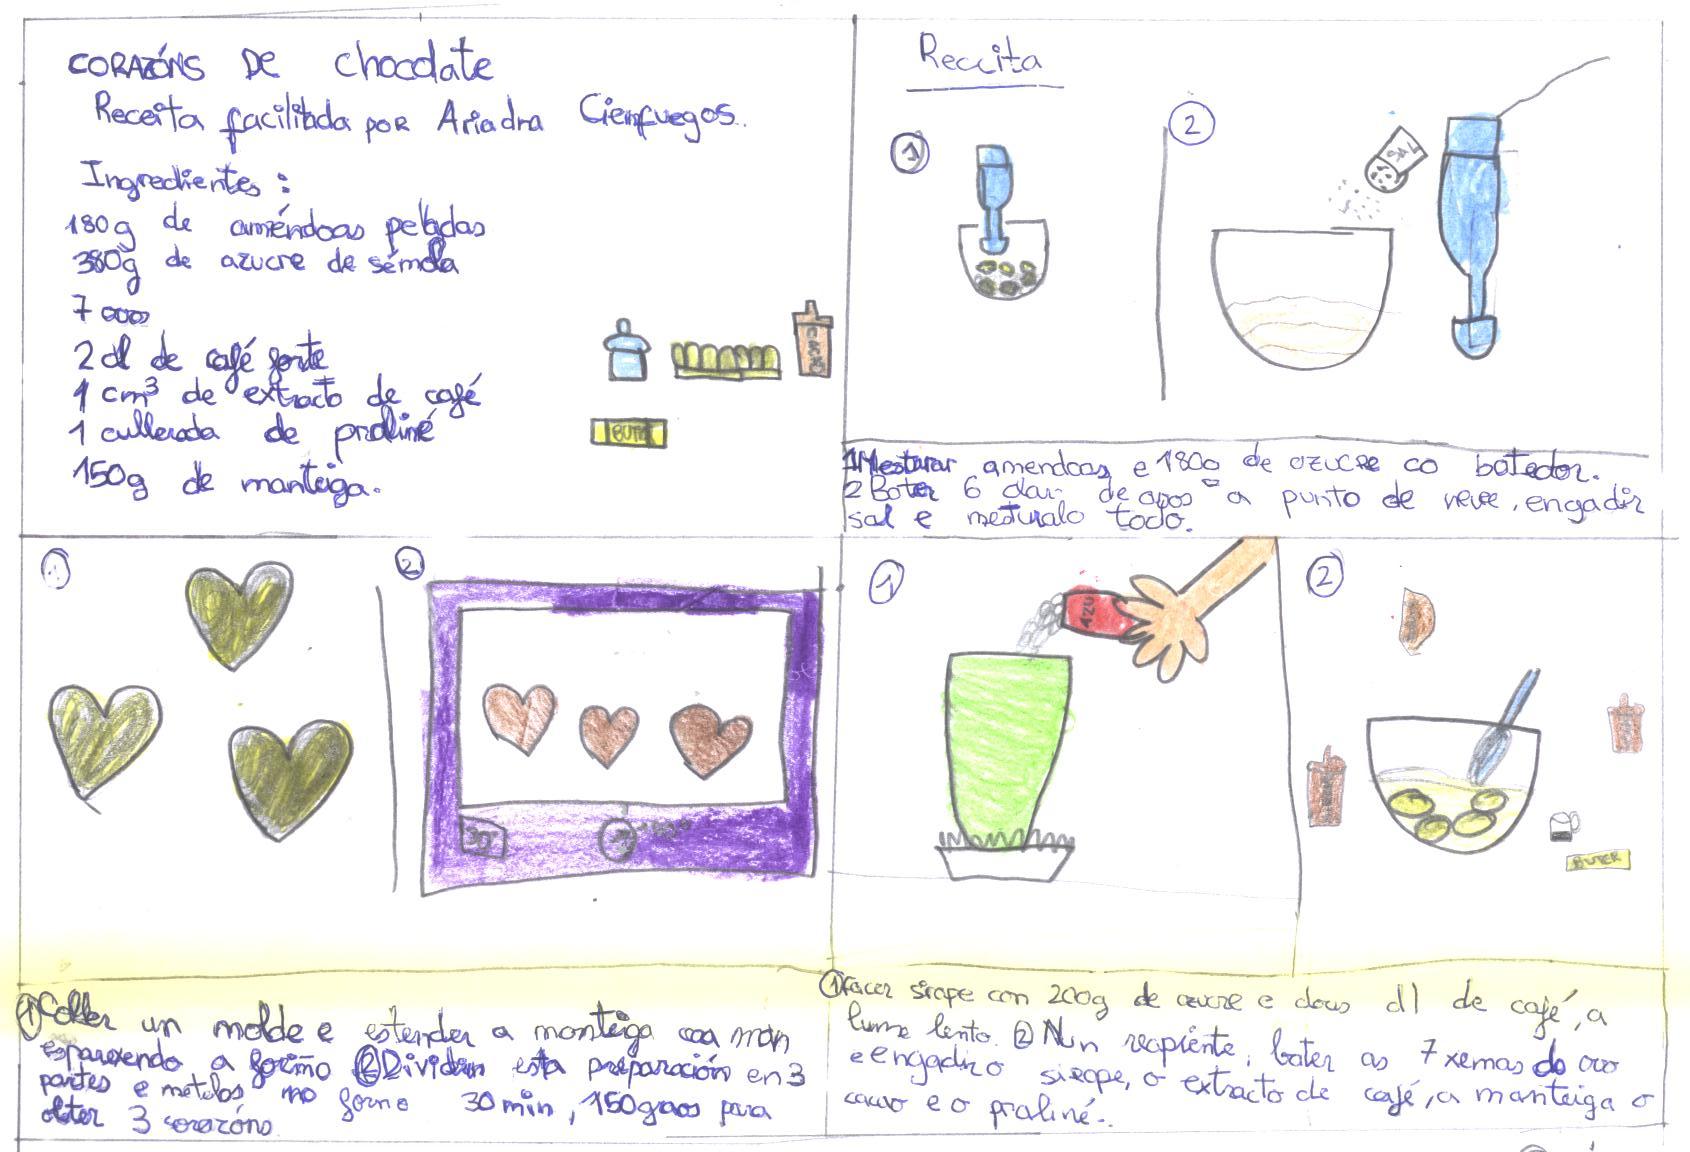 CORAZÓNS DE chocolate
Receita facilitada por Ariadna Cienfuegos.
Ingredientes:
180g de améndoas peladas
380g de azucre de sémola
7 ovos
2 dl de café forte
1 cm³ de extracto de café
1 cullerada de praliné
150g de manteiga.
CACAO
BUTER
Receita
1
2
SAL
1 Mesturar amendoas e 180g de azucre co batedor.
2 Bater 6 claras de ovos a punto de neve, engadir
sal e mesturalo todo.
1
2
30'
150º
① Coller un molde e estender a manteiga coa man
esparexendo a fariña ② Dividir esta preparación en 3
partes e metelas no forno 30 min, 150 graos para
obter 3 corazóns
1
AZU
2
BUTER
① Facer sirope con 200g de azucre e dous dl de café, a
lume lento. ② Nun recipiente, bater as 7 xemas do ovo
e engadir o sirope, o extracto de café, a manteiga o
cacao e o praliné.